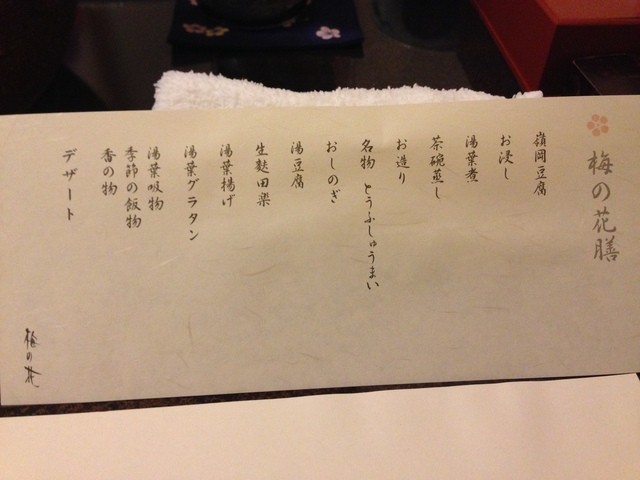 梅の花膳
嶺岡豆腐
お浸し
湯葉煮
茶碗蒸し
お造り
名物 とうふしゅうまい
おしのぎ
湯豆腐
生麩田楽
湯葉揚げ
湯葉グラタン
湯葉吸物
季節の飯物
香の物
デザート
梅の花